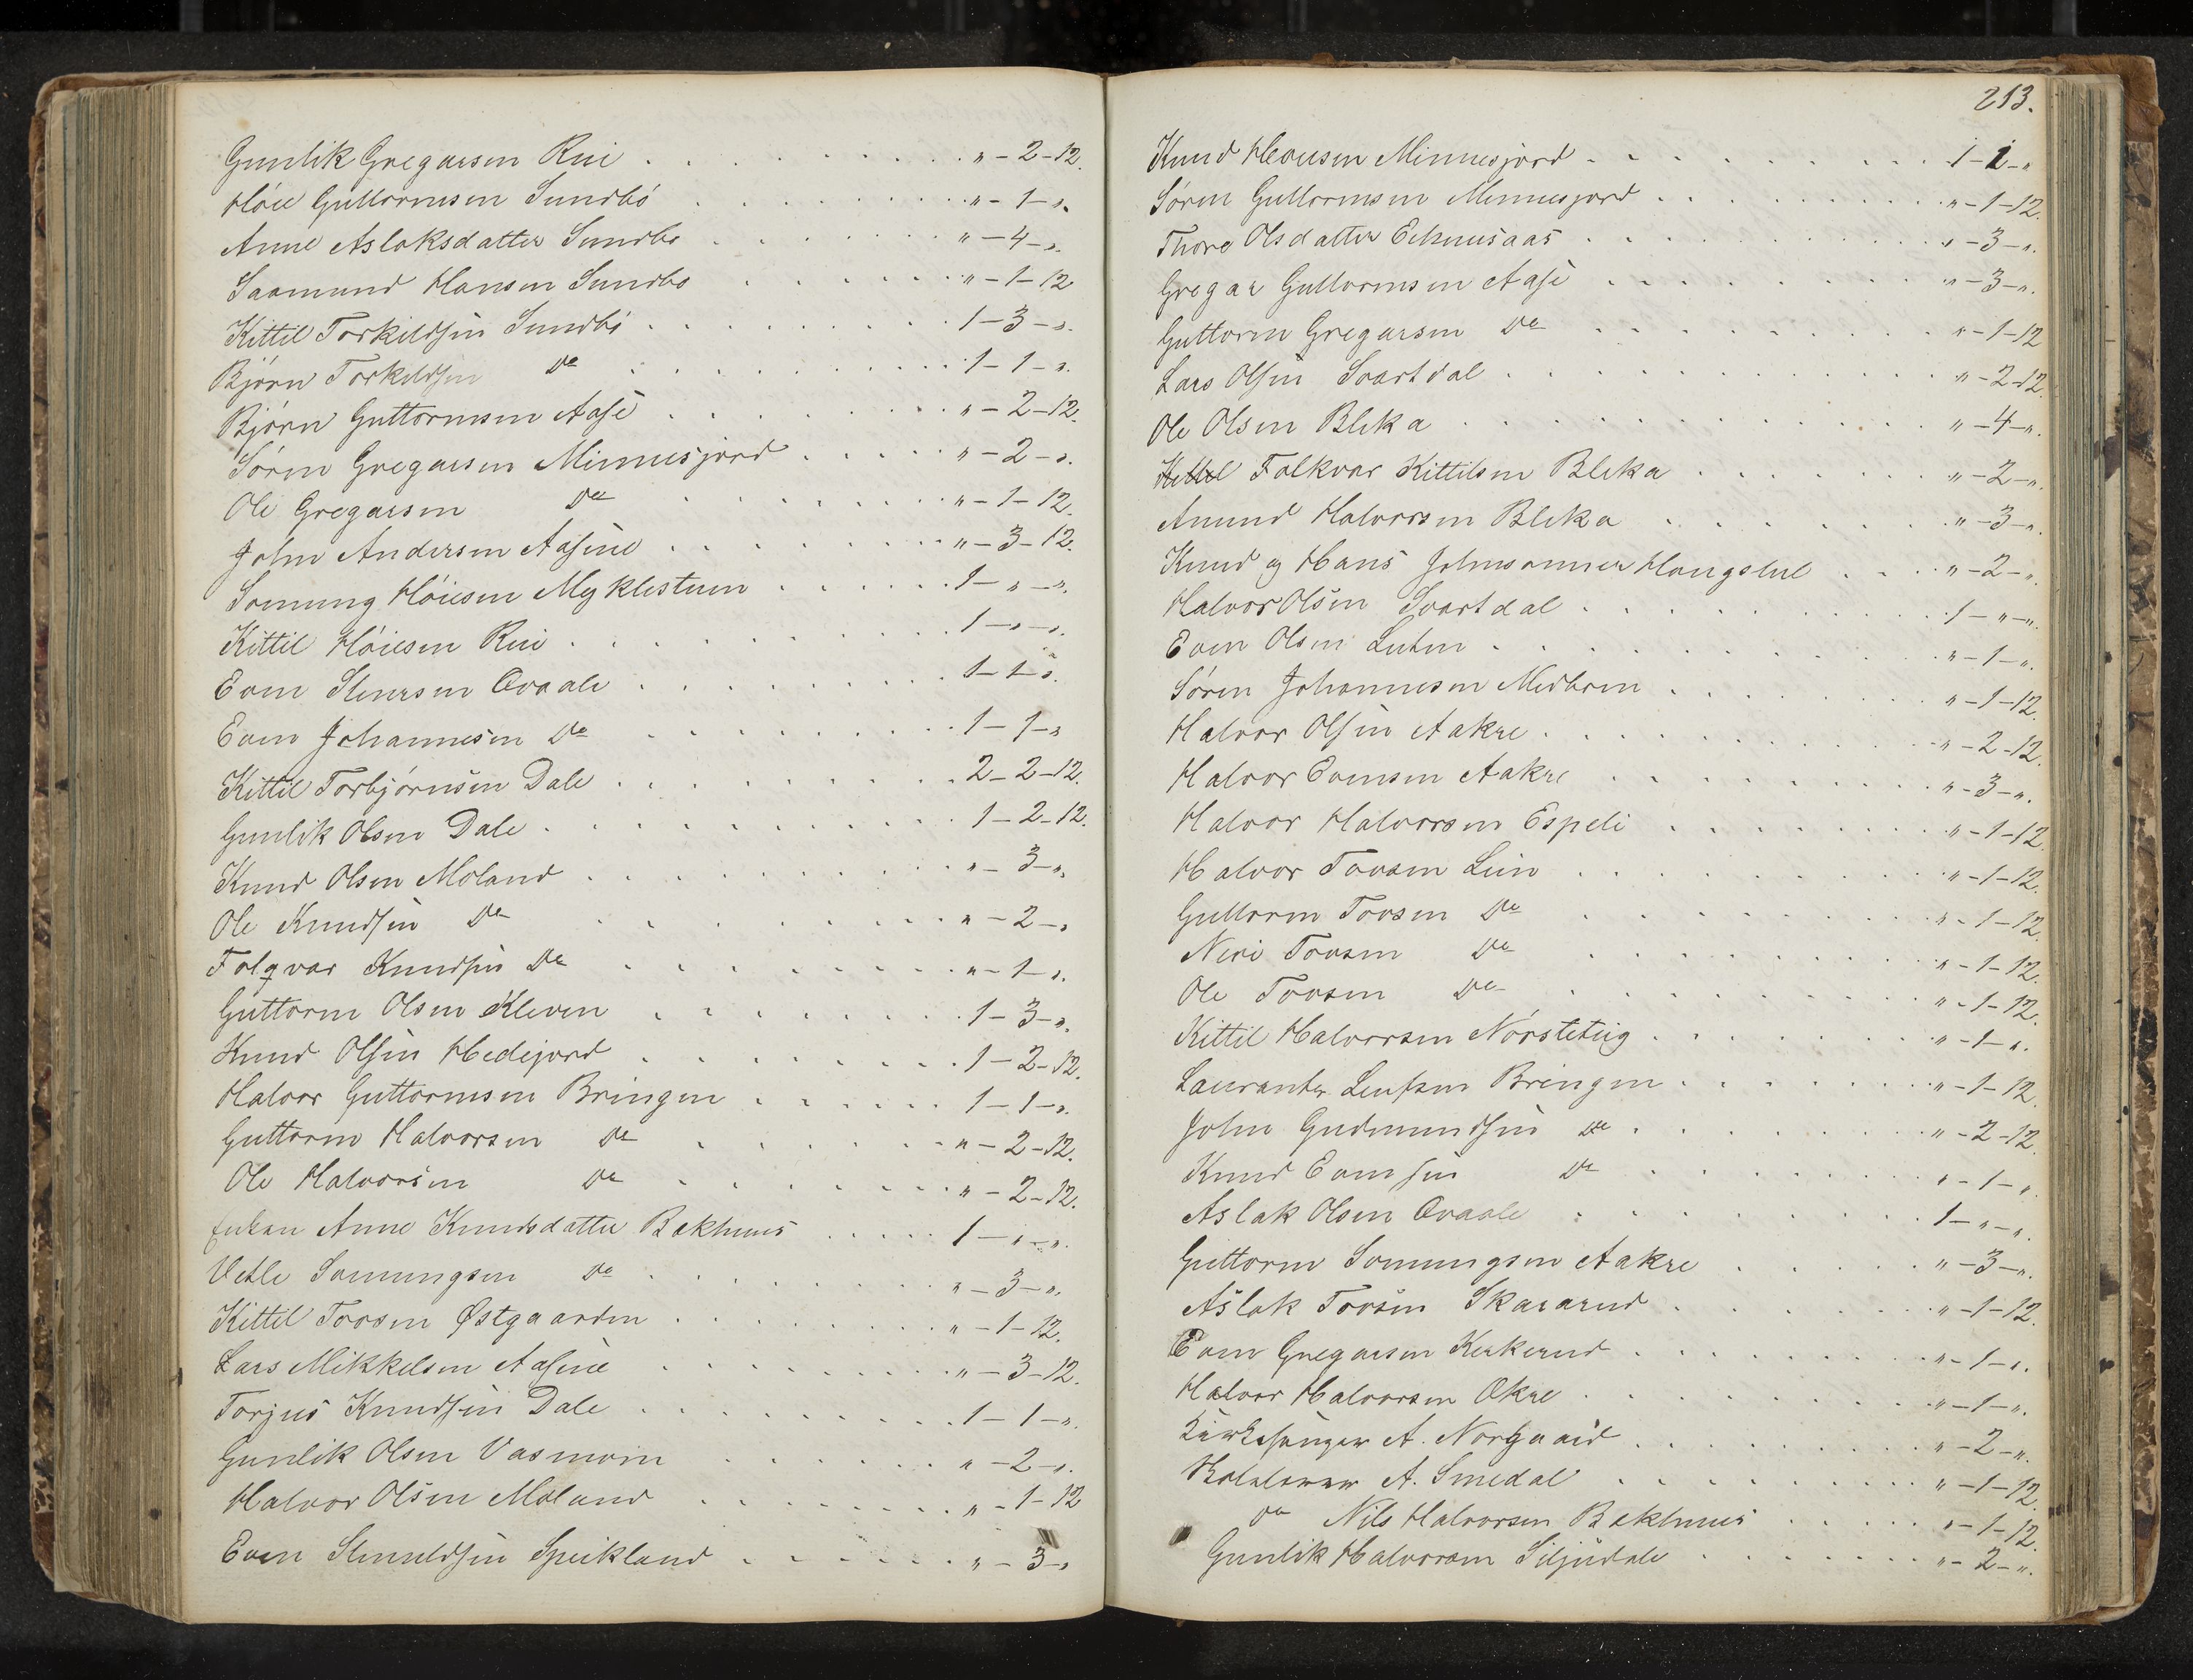 Gunlik Gregarsen Rui . . . . . . . . . " - 2 - 12.
Höie Guttormsen Sundbö . . . . . . . . " - 1 - ".
Anne Aslaksdatter Sundbö . . . . . . . " - 4 - ".
Saamund Hansen Sundbö . . . . . . " - 1 - 12
Kittil Torkildsen Sundbö . . . . . . . . 1 - 3 - ".
Björn Torkildsen Do . . . . . . . . 1 - 1 - ".
Björn Guttormsen Aase . . . . . . . . " - 2 - 12.
Sören Gregarsen Minnesjord . . . . . " - 2 - ".
Ole Gregarsen Do . . . . . . . . " - 1 - 12.
John Andersen Aasine . . . . . . . . " - 3 - 12.
Somung Höiesen Myklestuen . . . . . . 1 - " - ".
Kittil Höiesen Rui . . . . . . . . . 1 - " - ".
Even Steersen Qvaale . . . . . . . . 1 - 1 - ".
Even Johannesen Do . . . . . . . . 1 - 1 - "
Kittil Torbjörnsen Dale . . . . . . . . 2 - 2 - 12.
Gunlik Olsen Dale . . . . . . . . . . 1 - 2 - 12.
Knud Olsen Moland . . . . . . . . . " - 3 - ".
Ole Knudsen Do . . . . . . . . " - 2 - "
Folqvar Knudsen Do . . . . . . . . " - 1 - ".
Guttorm Olsen Kleven . . . . . . . . 1 - 3 - ".
Knud Olsen Hedejord . . . . . . . . 1 - 2 - 12.
Halvor Guttormsen Bringen . . . . . . 1 - 1 - ".
Guttorm Halvorsen Do . . . . . . " - 2 - 12.
Ole Halvorsen Do . . . . . . . " - 2 - 12.
Enken Anne Knudsdatter Bakhuus . . . . . 1 - " - ".
Vetle Somungsen Do . . . . . . . . " - 3 - ".
Kittil Tovsen Østgaarden . . . . . . . . " - 1 - 12.
Lars Mikkelsen Aasine . . . . . . . . " - 3 - 12.
Torjus Knudsen Dale . . . . . . . . . 1 - 1 - ".
Gunlik Olsen Vasmoin . . . . . . . " - 2 - ".
Halvor Olsen Moland . . . . . . . . " - 1 - 12
Even Steneldsen Speikland . . . . . . " - 3 - "
213.
Knud Hansen Minnesjord . . . . . . . . . 1 - 1 - "
Sören Guttormsen Minnesjord . . . . . . . . " - 1 - 12.
Thore Olsdatter . . . . . . . . . . " - 3 - ".
Gregar Guttormsen Aase . . . . . . . . " - 3 - ".
Guttorm Gregarsen Do . . . . . . . . . " - 1 - 12
Lars Olsen Svartdal . . . . . . . . . . . " - 2 - 12.
Ole Olsen Bleka . . . . . . . . . . . . " - 4 - ".
Kittil Folkvar Kittilsen Bleka . . . . . . " - 2 - ".
Amund Halvorsen Bleka . . . . . . . " - 3 - ".
Knud og Hans Johnsønner Haugstul . . . . " - 2 - ".
Halvor Olsen Svartdal . . . . . . . . . 1 - " - ".
Even Olsen Luten . . . . . . . . . . . " - 1 - ".
Sören Johannesen Medboen . . . . . . . . " - 1 - 12.
Halvor Olsen Aakre . . . . . . . . . . . " - 2 - 12.
Halvor Evensen Aakre . . . . . . . . " - 3 - ".
Halvor Halvorsen Espeli . . . . . . . . " - 1 - 12.
Halvor Tovsen Lien . . . . . . . . . " - 1 - 12.
Guttorm Tovsen Do . . . . . . . . " - 1 - 12.
Neri Tovsen Do . . . . . . . . " - 1 - 12.
Ole Tovsen Do . . . . . . . . . " - 1 - 12.
Kittil Halvorsen Nörsteteig . . . . . . . " - 1 - ".
Laurants Leufsen Bringen . . . . . . . " - 1 - 12.
John Gudmundsen Do . . . . . . . . " - 2 - 12.
Knud Evensen Do . . . . . . . " - 1 - ".
Aslak Olsen Qvaale . . . . . . . . 1 - " - ".
Guttorm Somungsen Aakre . . . . . " - 3 - ".
Aslak Tovsen Skararud . . . . . . . " - 1 - 12.
Even Gregarsen Kerkerud . . . . . . . " - 1 - ".
Halvor Halvorsen Økre . . . . . . . . . " - 1 - ".
Kirkesanger A. Norgaard . . . . . . . . " - 2 - ".
Skolelærer A. Smedal . . . . . . . . . " - 1 - 12.
Do Nils Halvorsen Bakhuus . . . . . " - 1 - 12.
Gunlik Halvorsen Siljudale . . . . . . " - 2 - ".